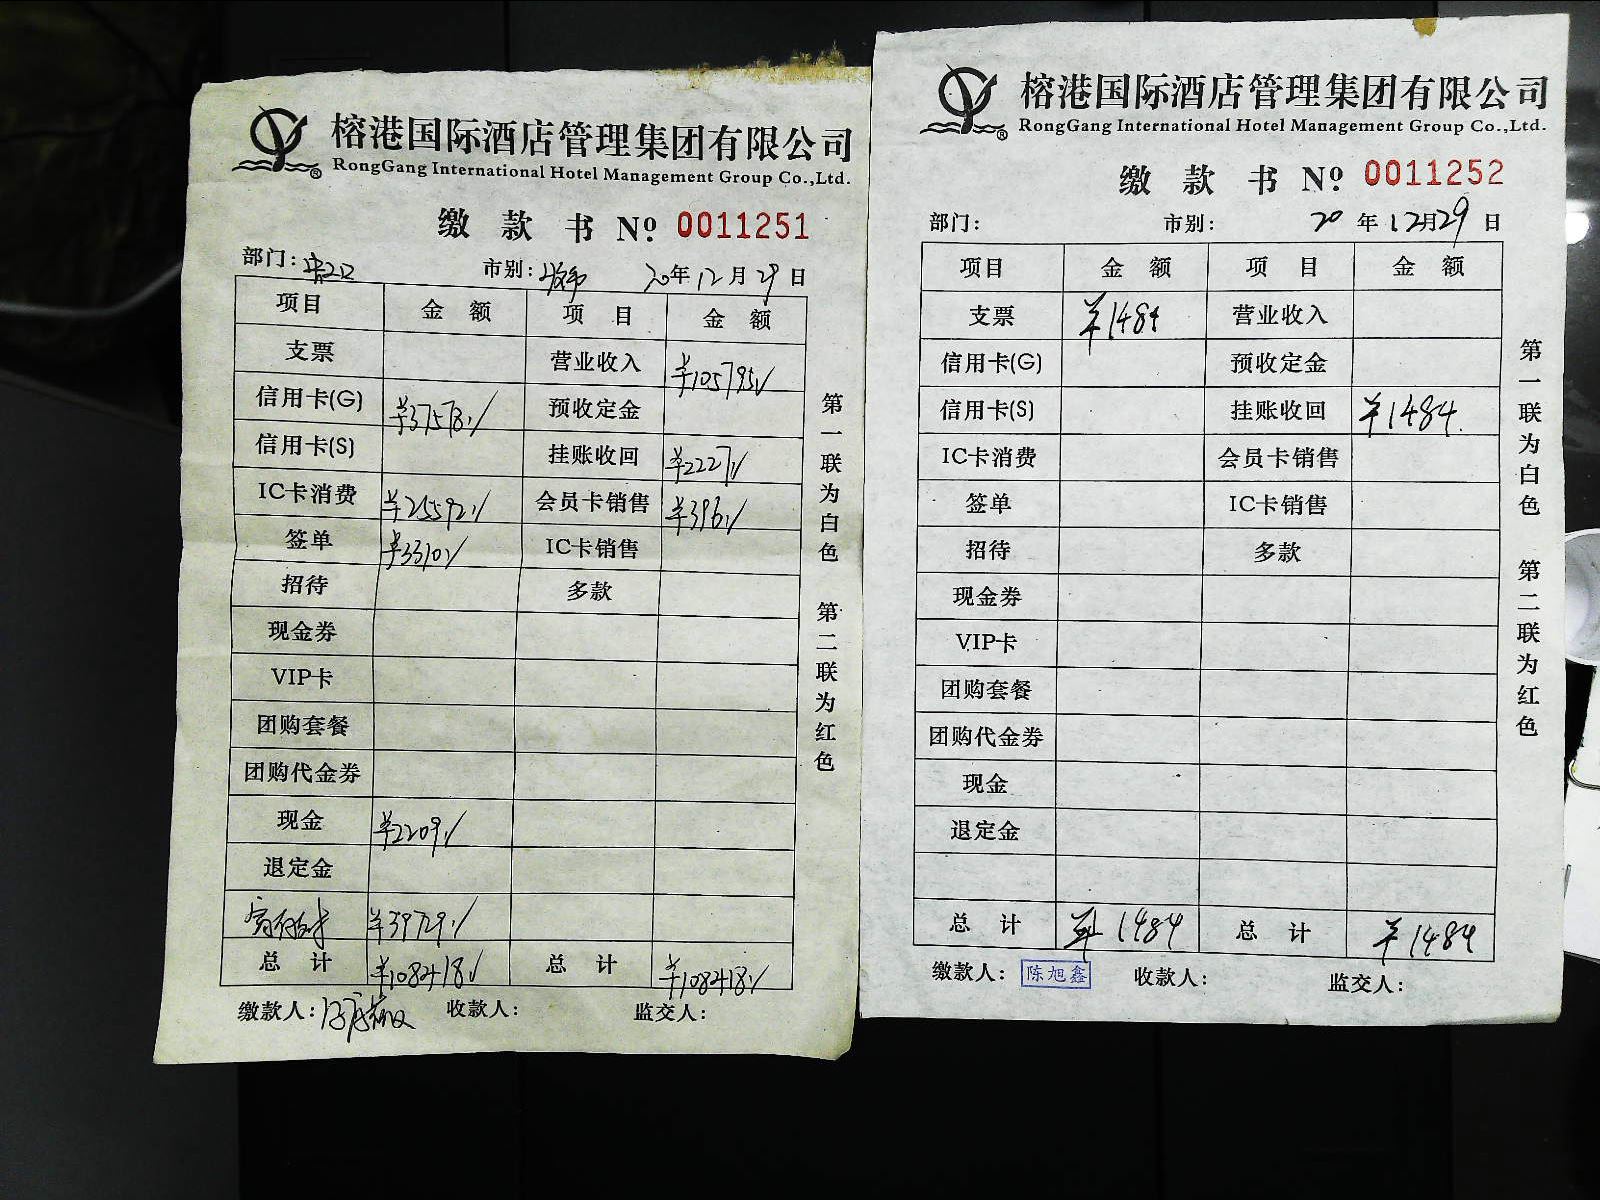 榕港国际酒店管理集团有限公司
RongGang International Hotel Management Group Co.,Ltd.
缴 款 书 Nº 0011251
部门: 市别: 20年12月29日
项目 金 额 项 目 金 额
支票 营业收入 ¥105795
信用卡(G) ¥37578 预收定金
信用卡(S) 挂账收回 ¥2227
IC卡消费 ¥25592 会员卡销售 ¥396
签单 ¥3310 IC卡销售
招待 多款
现金券
VIP卡
团购套餐
团购代金券
现金 ¥2209
退定金
¥39729
总 计 ¥108418 总 计 ¥108418
缴款人: 收款人: 监交人:
第一联为白色 第二联为红色
榕港国际酒店管理集团有限公司
RongGang International Hotel Management Group Co.,Ltd.
缴 款 书 Nº 0011252
部门: 市别: 20年12月29日
项目 金 额 项 目 金 额
支票 ¥1484 营业收入
信用卡(G) 预收定金
信用卡(S) 挂账收回 ¥1484.
IC卡消费 会员卡销售
签单 IC卡销售
招待 多款
现金券
VIP卡
团购套餐
团购代金券
现金
退定金
总 计 ¥1484 总 计 ¥1484
缴款人: 陈旭鑫 收款人: 监交人:
第一联为白色 第二联为红色